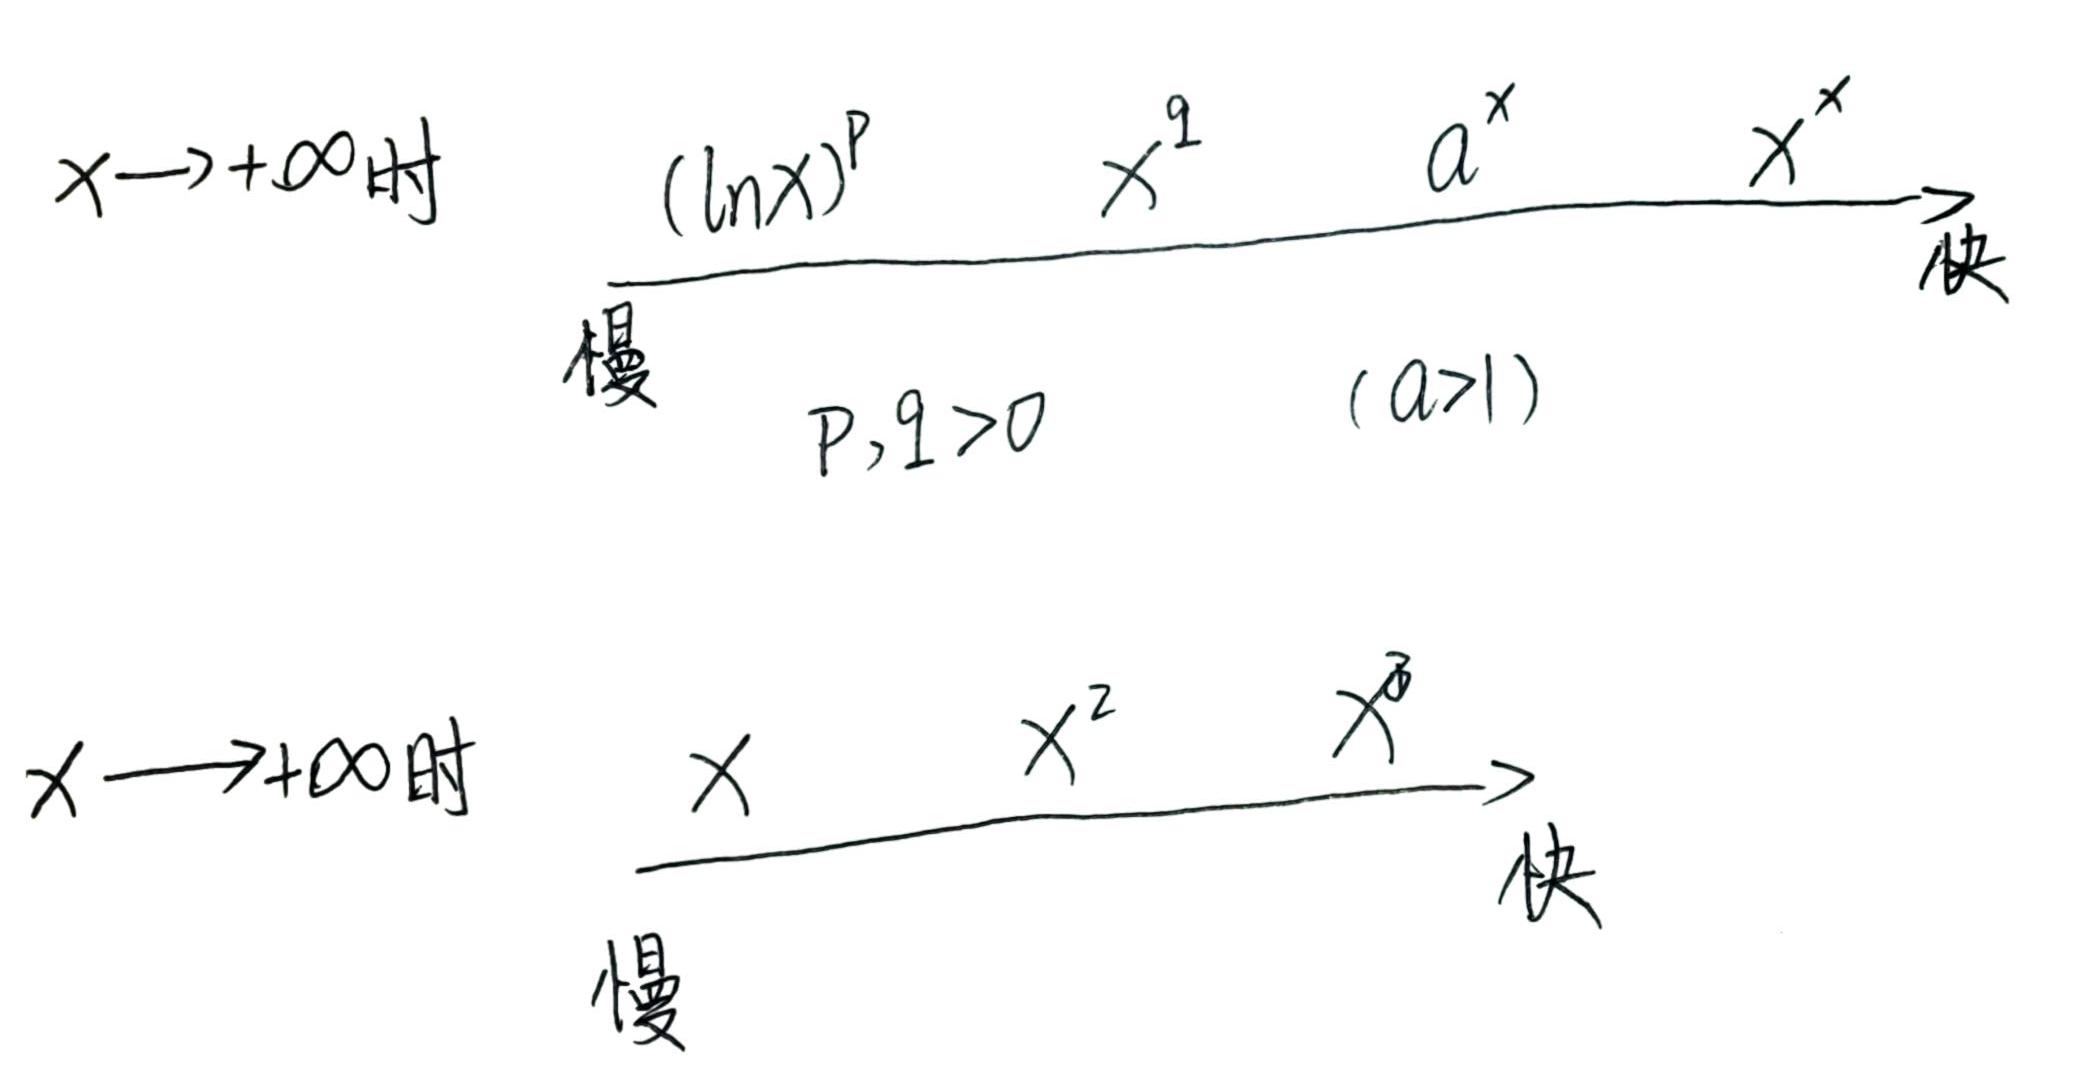 x→+∞时 (lnx)^p x^q a^x x^x
慢 快
p,q>0 (a>1)
x→+∞时 x x² x³
慢 快